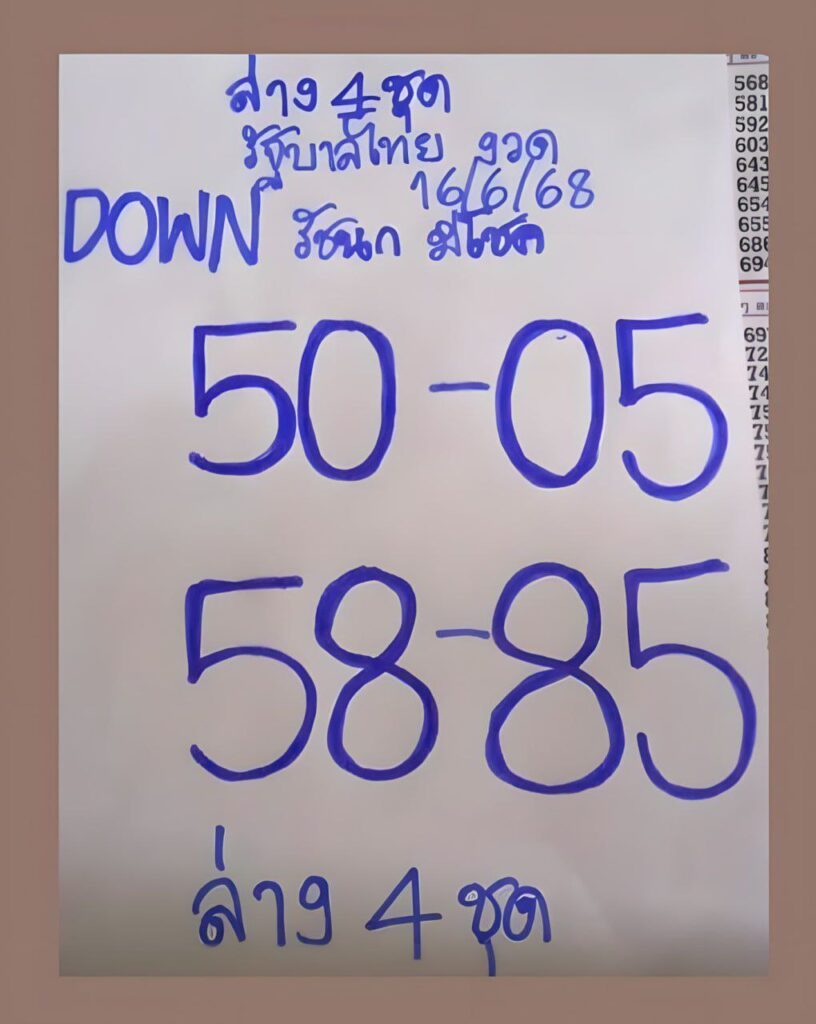 ล่าง 4 ชุด
รัฐบาลไทย งวด
16/6/68
DOWN รัชนก มีโชค
50-05
58-85
ล่าง 4 ชุด
568
581
592
603
643
645
654
655
686
694
72
74
74